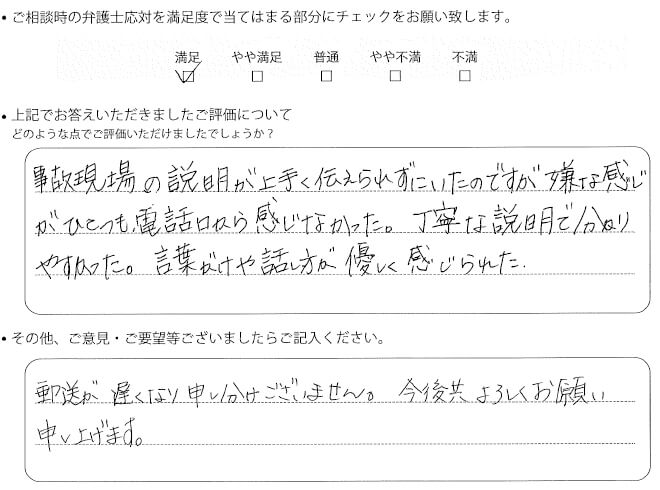 • ご相談時の弁護士応対を満足度で当てはまる部分にチェックをお願い致します。
満足 やや満足 普通 やや不満 不満
• 上記でお答えいただきましたご評価について
どのような点でご評価いただけましたでしょうか？
事故現場の説明が上手く伝えられずにいたのですが嫌な感じ
がひとつも、電話口から感じなかった。丁寧な説明で分かり
やすかった。言葉がけや話し方が優しく感じられた.
• その他、ご意見・ご要望等ございましたらご記入ください。
郵送が遅くなり申し分けございません。今後共よろしくお願い
申し上げます。